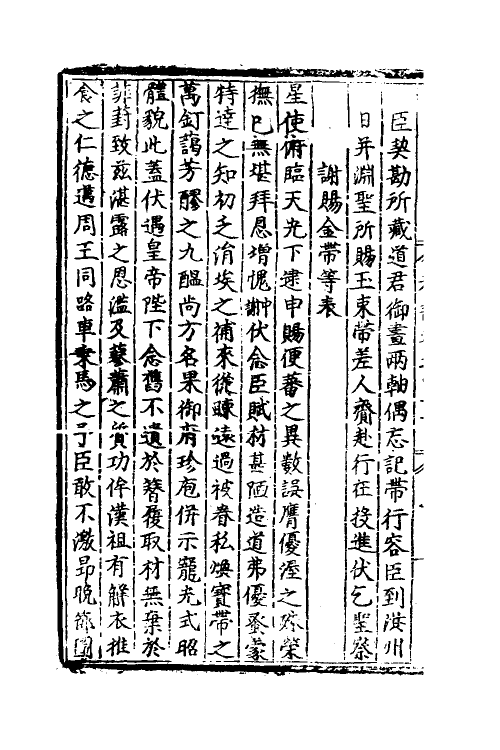 臣契勘所藏道君御畫兩軸偶忘記帶行容臣到汝州
日并淵聖所賜玉束帶差人齎赴行在投進伏乞聖察
謝賜金帶等表
星使俯臨天光下逮申賜便蕃之異數誤膺優渥之殊榮
撫己無堪拜恩增愧謝伏念臣賦材甚陋造道弗優蚤蒙
特達之知初乏涓埃之補來從踈遠過被眷私煥寶帶之
萬釘藹芳醪之九醞尚方名果御府珍庖併示寵光式昭
體貌此蓋伏遇皇帝陛下念舊不遺於簪履取材無棄於
葑菲致玆湛露之恩濫及蓼蕭之質功侔漢祖有解衣推
食之仁德邁周王同路車乘馬之予臣敢不激昂晚節圖